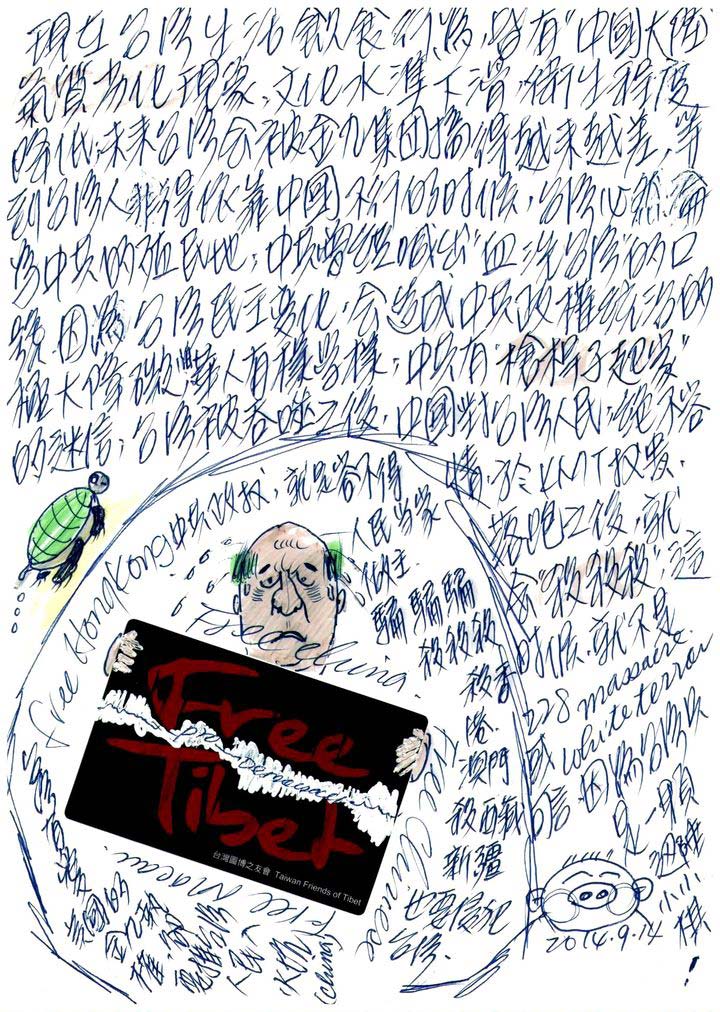 現在台灣生活飲食行為,皆有"中國大陸
氣質劣化現象、文化水準下滑,衛生程度
降低,未來台灣會被金九集团搞得越來越差,等
到台灣人非得依靠中國不行的时候,台灣必然淪
為中共的殖民地,中共曾經喊出"血洗台灣"的口
號,因為台灣民主变化,会造成中共政權統治的
極大障礙,華人有樣学樣,中共有"槍桿子起家"
的迷信,台灣被吞噬之後,中國對台灣人民,絕不容
情,於KMT权贵,
落跑之後,就
会"殺殺殺",這
时候,就不是
228 massacre
或 white terror
因為台灣只
是一顆
过
小小
棋
!
2014.9.14
Free HongKong
中共政权,就是容不得
人民当家
作主
騙騙騙
殺殺殺
殺香
港
澳門
殺西藏
新疆
也要侵犯
台灣
Free China
Free
Tibet
台灣圖博之友會 Taiwan Friends of Tibet
Free Macau
Chinese
China